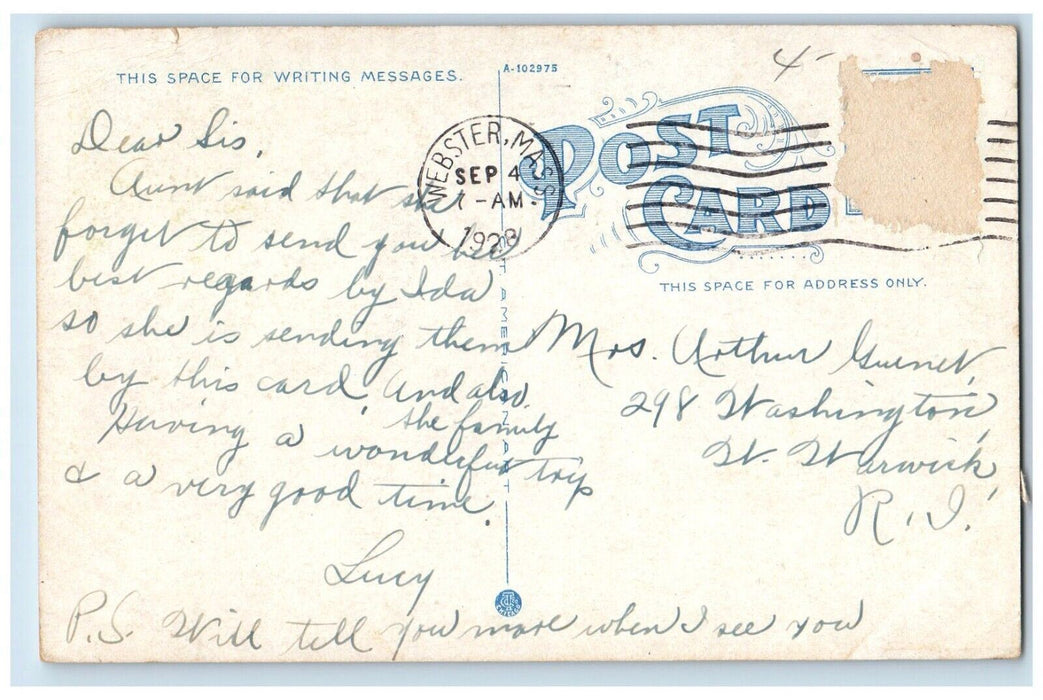 THIS SPACE FOR WRITING MESSAGES.
A-102975
Dear Sis,
Aunt said that she
forget to send you her
best regards by Ida
so she is sending them
by this card. And also
the family
Having a wonderful trip
& a very good time.
Lucy
P.S. Will tell you more when I see you
WEBSTER, MASS.
SEP 4
7-AM
1928
POST
CARD
4-
THIS SPACE FOR ADDRESS ONLY.
Mrs. Arthur
298 Washington,
W. Warwick,
R.I.